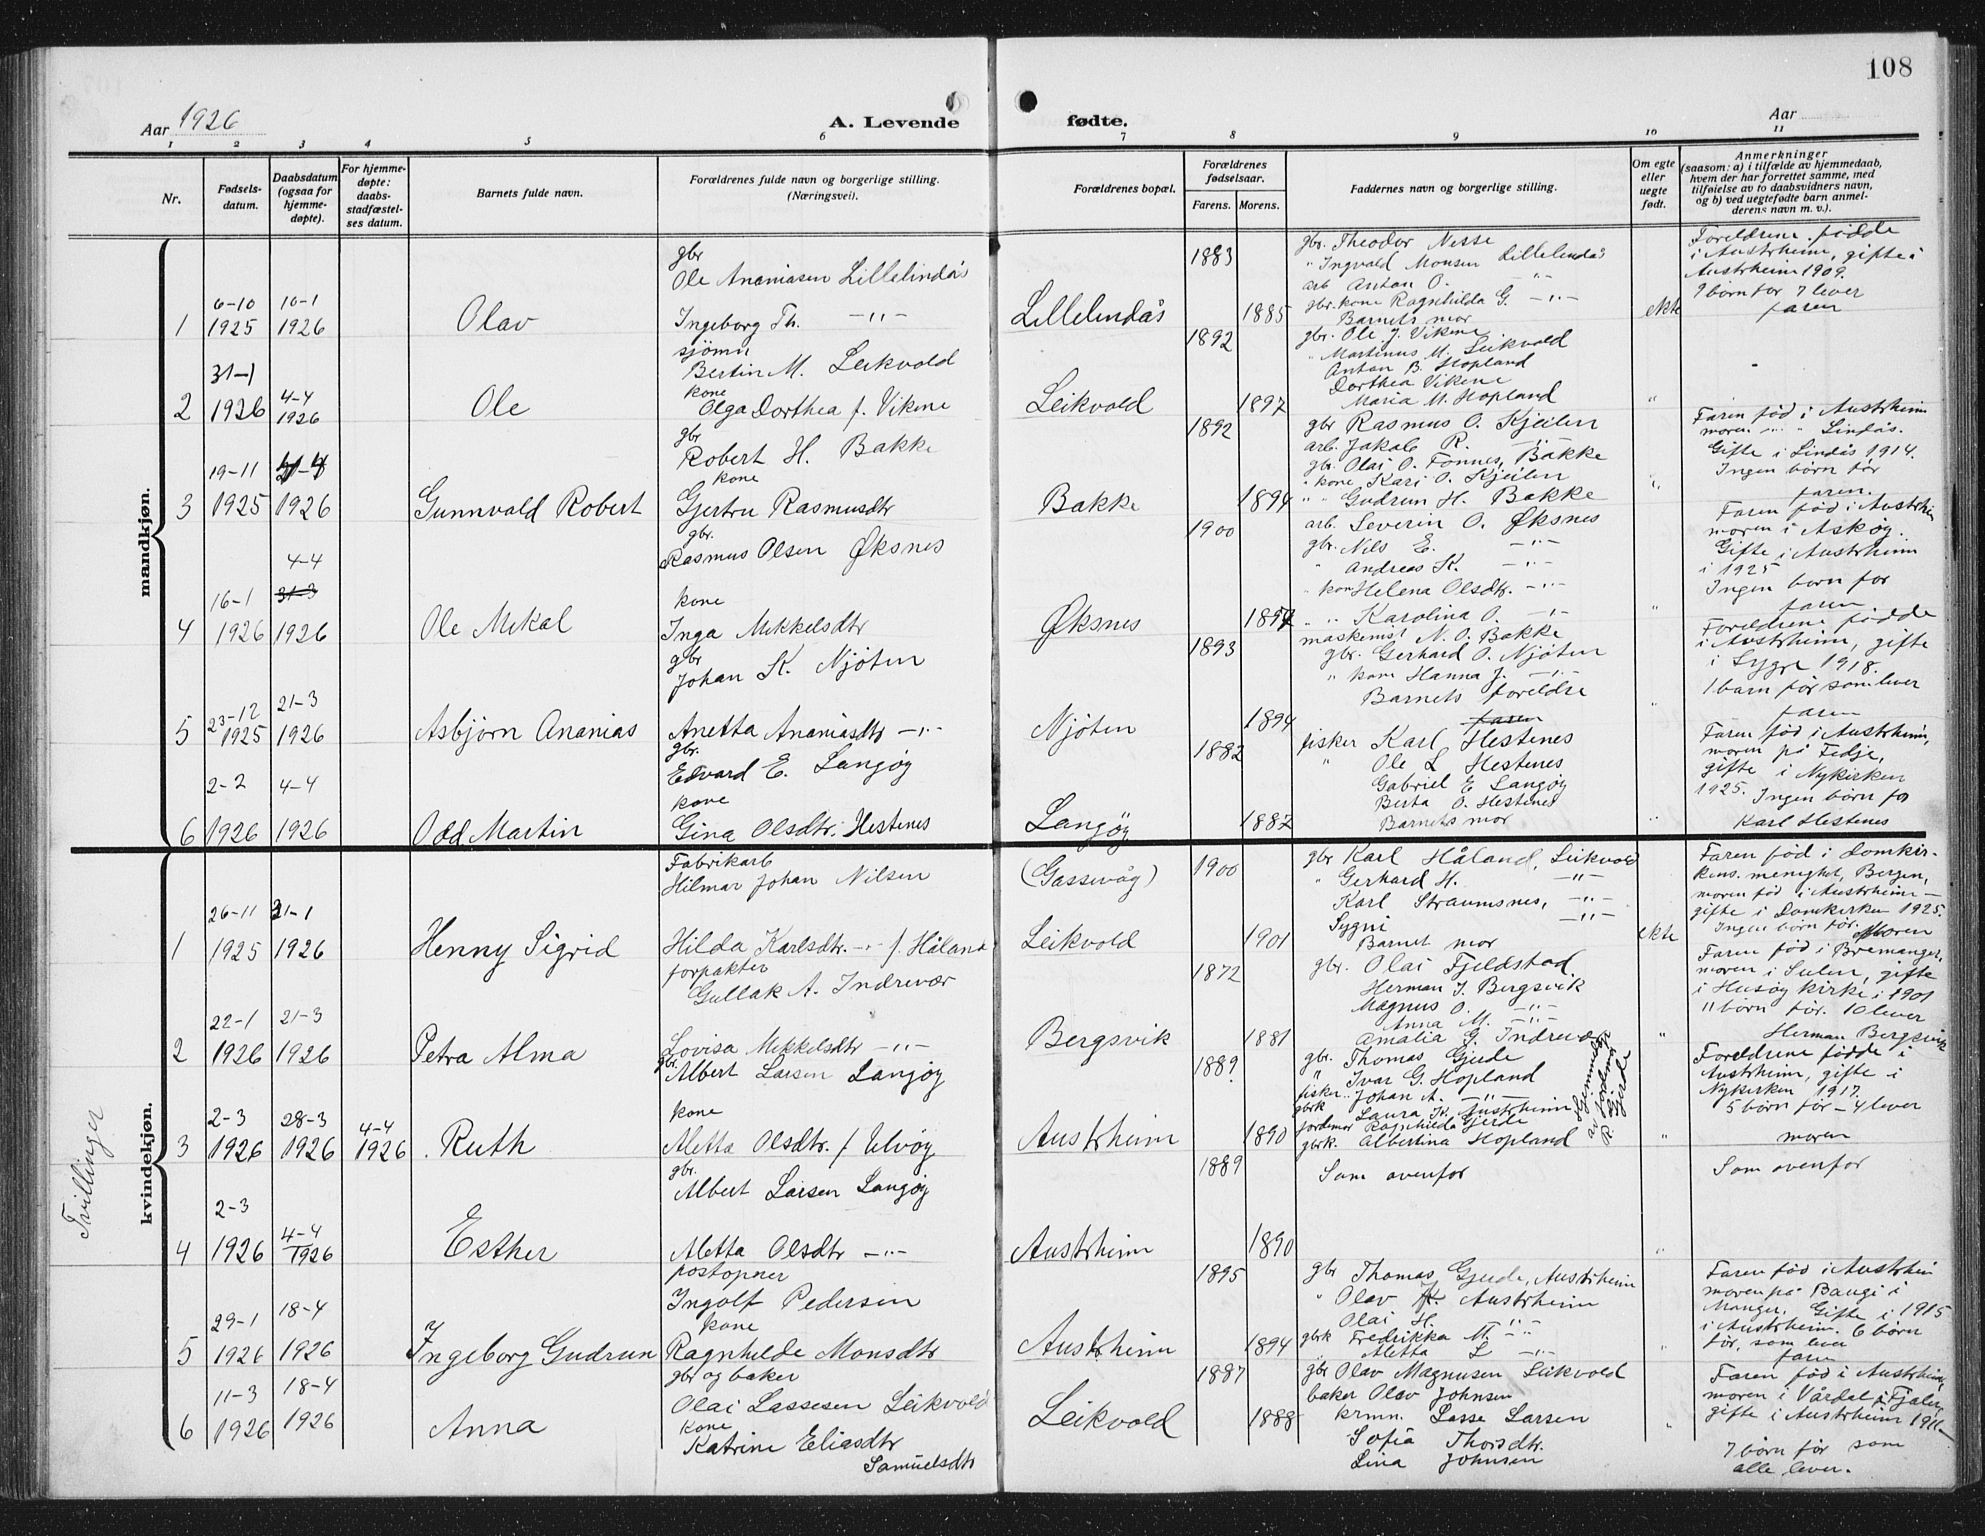 108
Aar 1926
A. Levende
fødte.
Aar
1 2 3 4 5 6 7 8 9 10 11
Nr.
Fødsels-
datum.
Daabsdatum
(ogsaa for
hjemme-
døpte).
For hjemme-
døpte:
daabs-
stadfæstel-
ses datum.
Barnets fulde navn.
Forældrenes fulde navn og borgerlige stilling.
(Næringsvei).
Forældrenes bopæl.
Forældrenes
fødselsaar.
Farens. Morens.
Faddernes navn og borgerlige stilling.
Om egte
eller
uegte
født.
Anmerkninger
(saasom: a) i tilfælde av hjemmedaab,
hvem der har forrettet samme, med
tilføielse av to daabsvidners navn,
og b) ved uegtefødte barn anmel-
derens navn m. v.).
mandkjøn.
1
6-10
1925
10-1
1926
Olav
gbr
Ole Ananiasen Lillelindås
Ingeborg Th. -"-
Lillelindås
1883
1885
gbr. Theodor Nesse
" Ingvald Monsen Lillelindås
arb Anton O. -"-
gbr. kone Ragnhilda G. -"-
Barnets mor
ekte
Foreldrene fødde
i Austrheim, gifte i
Austrheim 1909.
9 børn før 7 lever
faren
2
31-1
1926
4-4
1926
Ole
sjömn
Bertin M. Leikvold
kone
Olga Dorthea f. Vikene
Leikvold
1892
1897
gbr. Ole J. Vikene
" Martinus M. Leikvold
Anton B. Hopland
Dorthea Vikene
Maria M. Hopland
"
3
19-11
1925
4-4
1926
Gunnvald Robert
gbr
Robert H. Bakke
kone
Gjertru Rasmusdtr
Bakke
1892
1894
gbr Rasmus O. Kjeilen
arb. Jakob R. -"-
gbr. Olai O. Fonnes, Bakke
" kone Kari O. Kjeilen
" " Gudrun H. Bakke
"
Faren fød i Austrheim
moren " " Lindås.
Gifte i Lindås 1914.
Ingen børn før
faren.
4
16-1
1926
4-4
31-3
1926
Ole Mikal
gbr.
Rasmus Olsen Øksnes
kone
Inga Mikkelsdtr
Øksnes
1900
1897
arb. Severin O. Øksnes
gbr. Nils E. -"-
" Andreas K. -"-
" kon Helena Olsdtr. -"-
" " Karolina O. -"-
"
Faren fød i Austrheim
moren i Askøy.
Gifte i Austrheim
i 1925
Ingen born for
faren.
5
23-12
1925
21-3
1926
Asbjørn Ananias
gbr
Johan K. Njöten
Anetta Ananiasdtr -"-
Njöten
1893
1894
maskemst N. O. Bakke
gbr. Gerhard O. Njöten
" kone Hanna J. -"-
Barnets foreldre
faren
"
Foreldrene fødde
i Austrheim, gifte
i Lygre 1918.
1 barn før som lever
faren
6
2-2
1926
4-4
1926
Odd Martin
gbr.
Edvard E. Langøy
kone
Gina Olsdtr. Hestenes
Langøy
1882
1887
fisker Karl Hestenes
" Ole L Hestenes
Gabriel E Langøy
Berta O. Hestenes
Barnets mor
"
Faren fød i Austrheim,
moren på Fedje,
gifte i Nykirken
1925. Ingen børn før
Karl Hestenes
kvindekjøn.
1
26-11
1925
31-1
1926
Henny Sigrid
Fabrikarb
Hilmar Johan Nilsen
Hilda Karlsdtr. -"- f. Håland
(Gassevåg)
Leikvold
1900
1901
gbr Karl Håland, Leikvold
" Gerhard H. -"-
Karl Straumsnes, -"-
Sygni -"-
Barnet mor
ekte
Faren fød i Domkir-
kens menighet, Bergen,
moren fød i Austrheim -
gifte i Domkirken 1925.
Ingen børn før. Moren
2
22-1
1926
21-3
1926
Petra Alma
forpakter
Gullak A. Indrevær
Lovisa Mikkelsdtr -"-
Bergsvik
1872
1881
gbr. Olai Fjeldstad
Herman J. Bergsvik
Magnus O. -"-
Anna M. -"-
Amalia G. Indrevær
"
Faren fød i Bremanger,
moren i Sulen, gifte
i Husøy kirke i 1901
11 børn før. 10 lever
Herman Bergsvik
Tvillinger
3
2-3
1926
28-3
1926
4-4
1926
Ruth
gbr.
Albert Larsen Langøy
kone
Aletta Olsdtr. f Ulvøy
Austrheim
1889
1890
gbr. Thomas Gjerde
" Ivar G. Hopland
fisker Johan A. -"-
gbrk Laura K. Austrheim
jordemor Ragnhilda Gjerde
gbrk. Albertina Hopland
Hjemmedøpt
av jordmor
R. Gjerde
"
Foreldrene fødde i
Austrheim, gifte i
Nykirken 1917.
5 børn før - 4 lever
moren
4
2-3
1926
4-4
1926
Esther
gbr.
Albert Larsen Langøy
Aletta Olsdtr -"-
Austrheim
1889
1890
Som ovenfor
"
Som ovenfor
5
29-1
1926
18-4
1926
Ingeborg Gudrun
postopner
Ingolf Pedersen
kone
Ragnhilde Monsdtr
Austrheim
1895
1894
gbr Thomas Gjerde, Austrheim
" Olav K. Austrheim
Olai H. "
gbrk Fredrikka M. -"-
" Aletta L -"-
"
Faren fød i Austrheim
moren på Baugi i
Manger. Gifte i 1915
i Austrheim. 6 børn
før, som lever
faren
6
11-3
1926
18-4
1926
Anna
gbr og baker
Olai Lassesen Leikvold
kone
Katrine Eliasdtr
Samuelsdtr
Leikvold
1887
1888
gbr Olav Magnusen Leikvold
baker Olav Johnsen
krmn. Lasse Larsen
Sofia Thorsdtr.
Lina Johnsen
"
Faren fød i Austrheim,
moren i Vårdal i Fjaler,
gifte i Austrheim 1911
7 børn før som
alle lever.